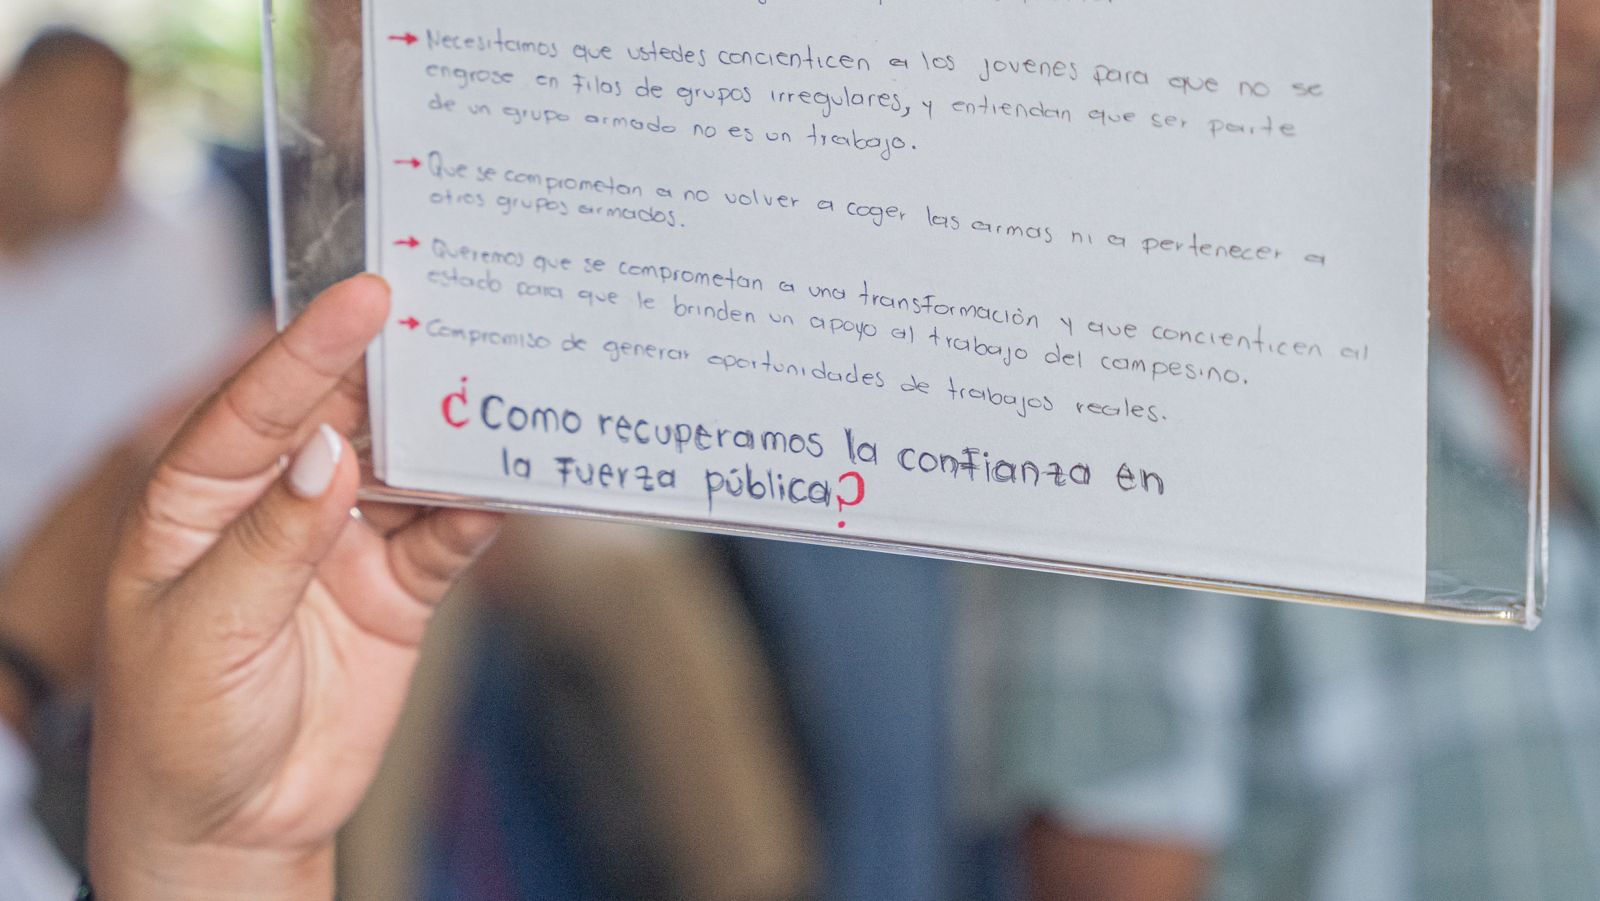 → Necesitamos que ustedes concienticen a los jovenes para que no se
engrose en filas de grupos irregulares, y entiendan que ser parte
de un grupo armado no es un trabajo.
→ Que se comprometan a no volver a coger las armas ni a pertenecer a
otros grupos armados.
→ Queremos que se comprometan a una transformación y que concienticen al
estado para que le brinden un apoyo al trabajo del campesino.
→ Compromiso de generar oportunidades de trabajos reales.
¿Como recuperamos la confianza en
la fuerza pública?